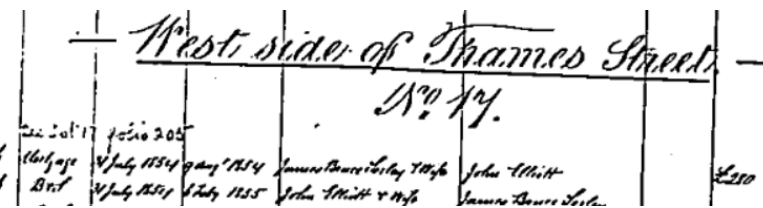 — West side of Thames Street —
No. 17.
Vol 17 folio 205
Mortgage 4 July 1854 9 Augt 1854 James Bruce & Wife John Elliott £250
4 July 1854 6 Feby 1855 John Elliott & Wife James Bruce